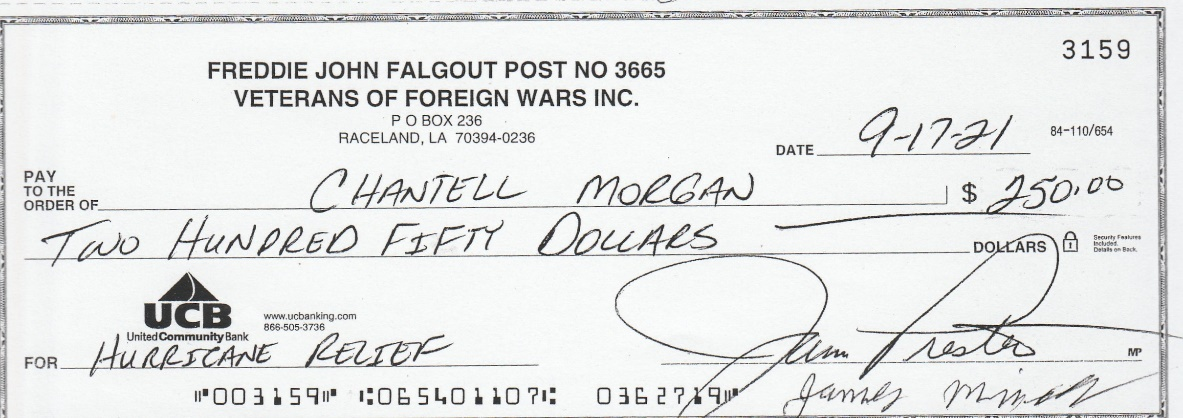 3159
FREDDIE JOHN FALGOUT POST NO 3665
VETERANS OF FOREIGN WARS INC.
P O BOX 236
RACELAND, LA 70394-0236
DATE 9-17-21 84-110/654
PAY TO THE ORDER OF CHANTELL MORGAN $ 250.00
TWO HUNDRED FIFTY DOLLARS DOLLARS
Security Features
Included.
Details on Back.
UCB
United Community Bank
www.ucbanking.com
866-505-3736
FOR HURRICANE RELIEF
MP
James
⑈003159⑈ ⑆065401107⑆ 0362719⑈